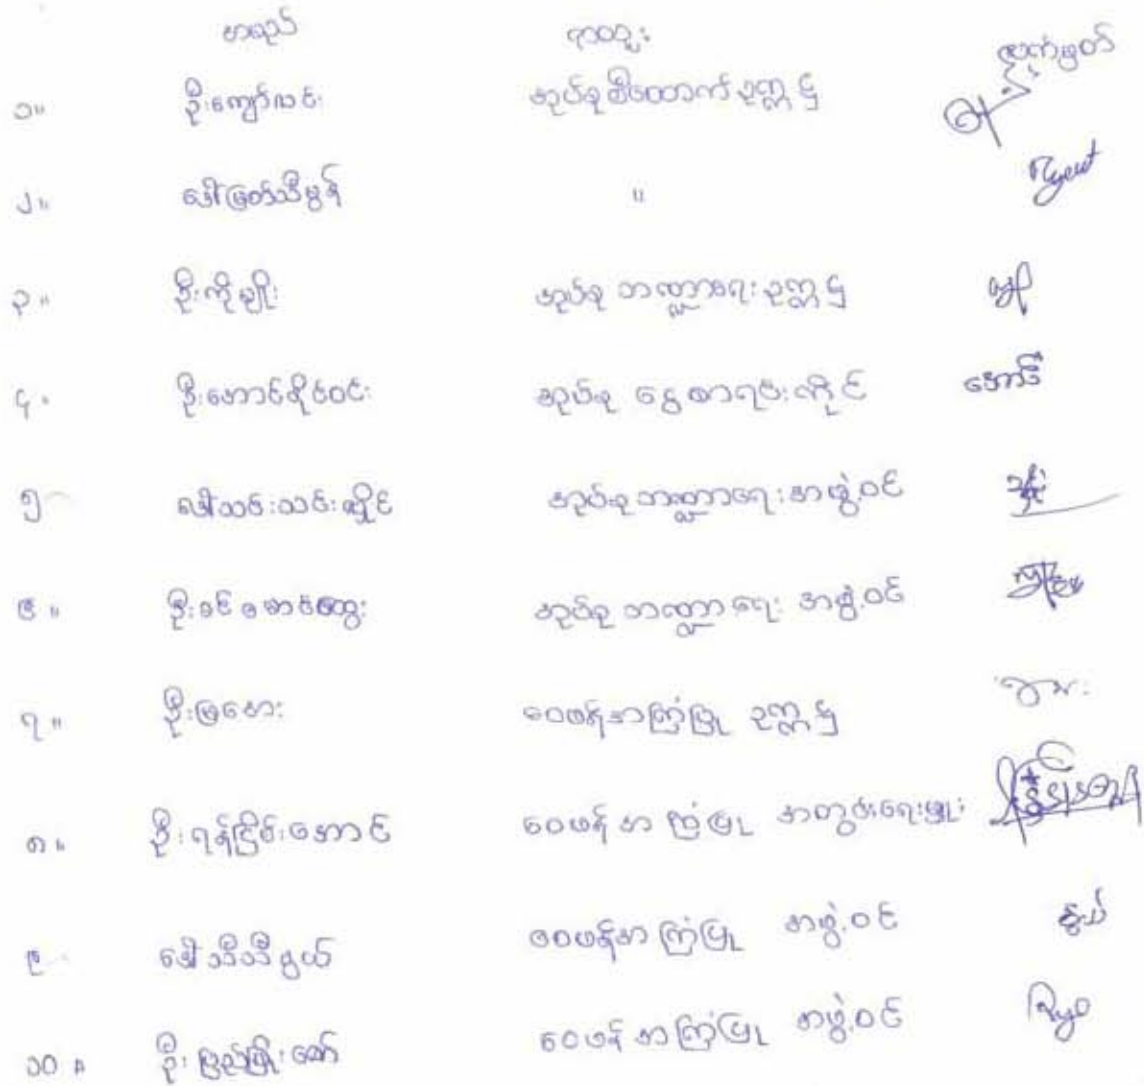 အမည် ရာထူး လက်မှတ်
၁။ ဦးကျော်လင်း အုပ်စုစီထောက်ဥက္ကဋ္ဌ
၂။ ဒေါ်မြတ်သီမွန် "
၃။ ဦးကိုမျိုး အုပ်စု ဘဏ္ဍာရေးဥက္ကဋ္ဌ
၄။ ဦးအောင်စိုင်ဝင်း အုပ်စု ငွေစာရင်းကိုင်
၅ ဒေါ်သင်းသင်းလှိုင် အုပ်စုဘဏ္ဍာရေးအဖွဲ့ဝင်
၆။ ဦးခင်မောင်ထွေး အုပ်စု ဘဏ္ဍာရေး အဖွဲ့ဝင်
၇။ ဦးမြအေး ဝေဖန်အကြံပြု ဥက္ကဋ္ဌ
၈။ ဦးရန်ငြိမ်းအောင် ဝေဖန်အကြံပြု အတွင်းရေးမှူး
၉ ဒေါ်သီသီနွယ် ဝေဖန်အကြံပြု အဖွဲ့ဝင် နွယ်
၁၀။ ဦးပြည်ဖြိုးဇော် ဝေဖန်အကြံပြု အဖွဲ့ဝင်